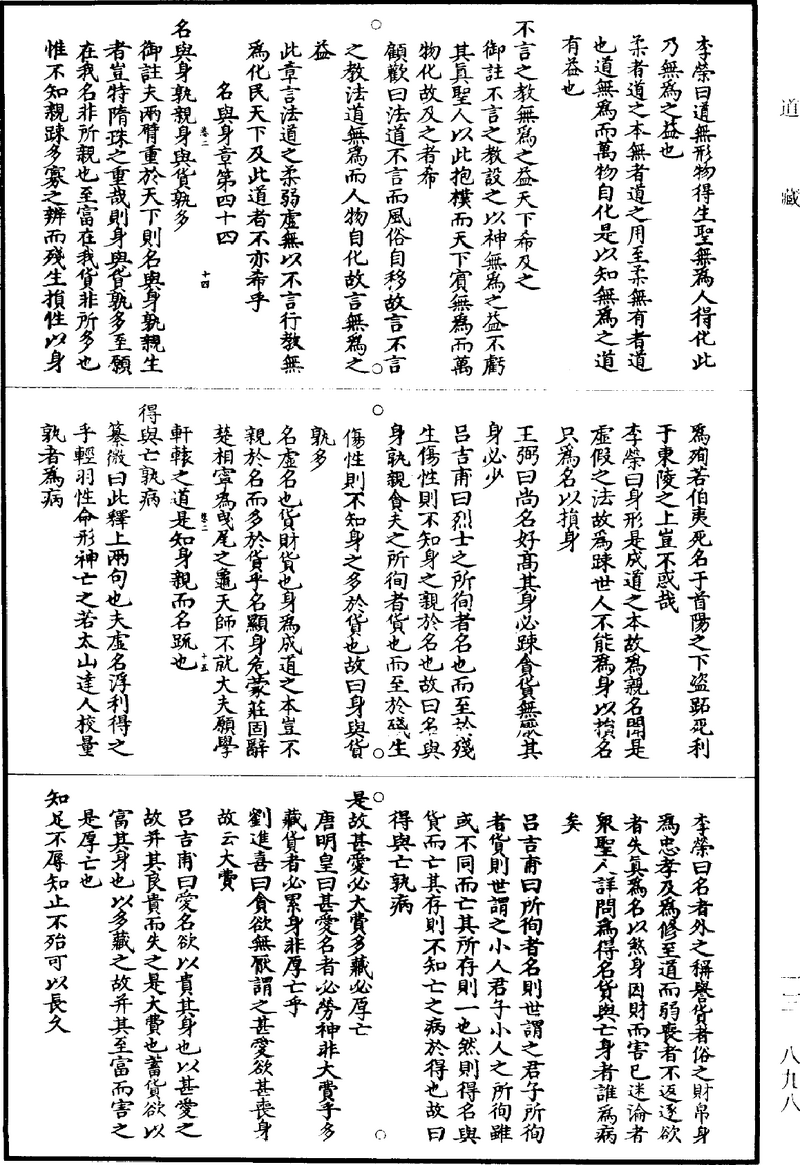 道藏
李榮曰道無形物得生聖無為人得化此
乃無為之益也
柔者道之本無者道之用至柔無有者道
也道無為而萬物自化是以知無為之道
有益也
不言之教無為之益天下希及之
御註不言之教設之以神無為之益不虧
其真聖人以此抱樸而天下賓無為而萬
物化故及之者希
顧歡曰法道不言而風俗自移故言不言
之教法道無為而人物自化故言無為之
益
此章言法道之柔弱虛無以不言行教無
為化民天下及此道者不亦希乎
名與身章第四十四
卷二 十四
名與身孰親身與貨孰多
御註夫兩臂重於天下則名與身孰親生
者豈特隋珠之重哉則身與貨孰多至願
在我名非所親也至富在我貨非所多也
惟不知親踈多寡之辨而殘生損性以身
為殉若伯夷死名于首陽之下盜跖死利
于東陵之上豈不惑哉
李榮曰身形是成道之本故為親名聞是
虛假之法故為踈世人不能為身以損名
只為名以損身
王弼曰尚名好高其身必踈貪貨無厭其
身必少
呂吉甫曰烈士之所徇者名也而至於殘
生傷性則不知身之親於名也故曰名與
身孰親貪夫之所徇者貨也而至於殘生
傷性則不知身之多於貨也故曰身與貨
孰多
名虛名也貨財貨也身為成道之本豈不
親於名而多於貨乎名顯身危蒙莊固辭
楚相寧為曳尾之龜天師不就大夫願學
卷二 十五
軒轅之道是知身親而名疏也
得與亡孰病
纂微曰此釋上兩句也夫虛名浮利得之
乎輕羽性命形神亡之若太山達人校量
孰者為病
李榮曰名者外之稱譽貨者俗之財帛身
為忠孝及為修至道而弱喪者不返逐欲
者失真為名以煞身因財而害已迷淪者
衆聖人詳問為得名貨與亡身者誰為病
矣
呂吉甫曰所徇者名則世謂之君子所徇
者貨則世謂之小人君子小人之所徇雖
或不同而亡其所存則一也然則得名與
貨而亡其存則不知亡之病於得也故曰
得與亡孰病
是故甚愛必大費多藏必厚亡
唐明皇曰甚愛名者必勞神非大費乎多
藏貨者必累身非厚亡乎
劉進喜曰貪欲無厭謂之甚愛欲甚喪身
故云大費
呂吉甫曰愛名欲以貴其身也以甚愛之
故并其良貴而失之是大費也蓄貨欲以
富其身也以多藏之故并其至富而害之
是厚亡也
知足不辱知止不殆可以長久
一三 八九八